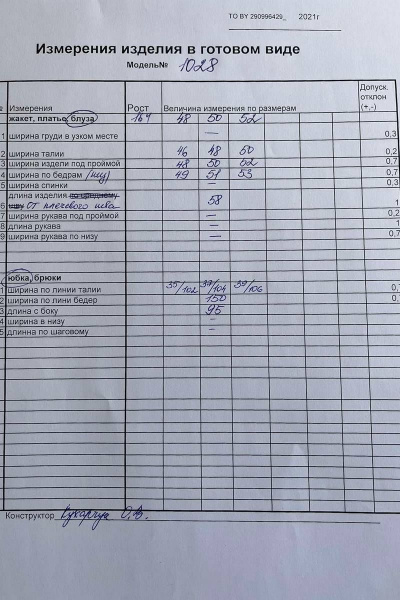 ТО BY 290996429_ 2021г
Измерения изделия в готовом виде
Модель№ 1028
№ Измерения Рост Величина измерения по размерам Допуск. отклон (+,-)
жакет, платье, блуза 164 48 50 52
1 ширина груди в узком месте — 0,3
2 ширина талии 46 48 50 0,2
3 ширина издели под проймой 48 50 52 0,7
4 ширина по бедрам 49 51 53 0,7
5 ширина спинки — 0,3
длина изделия по среднему
6 шву от плечевого шва 58 1
7 ширина рукава под проймой — 0,2
8 длина рукава — 1
9 ширина рукава по низу — 0,7
юбка, брюки
1 ширина по линии талии 35/102 37/104 39/106 0,
2 ширина по лини бедер 150
3 длина с боку 95
4 ширина в низу –
5 длинна по шаговому –
Конструктор О.В.